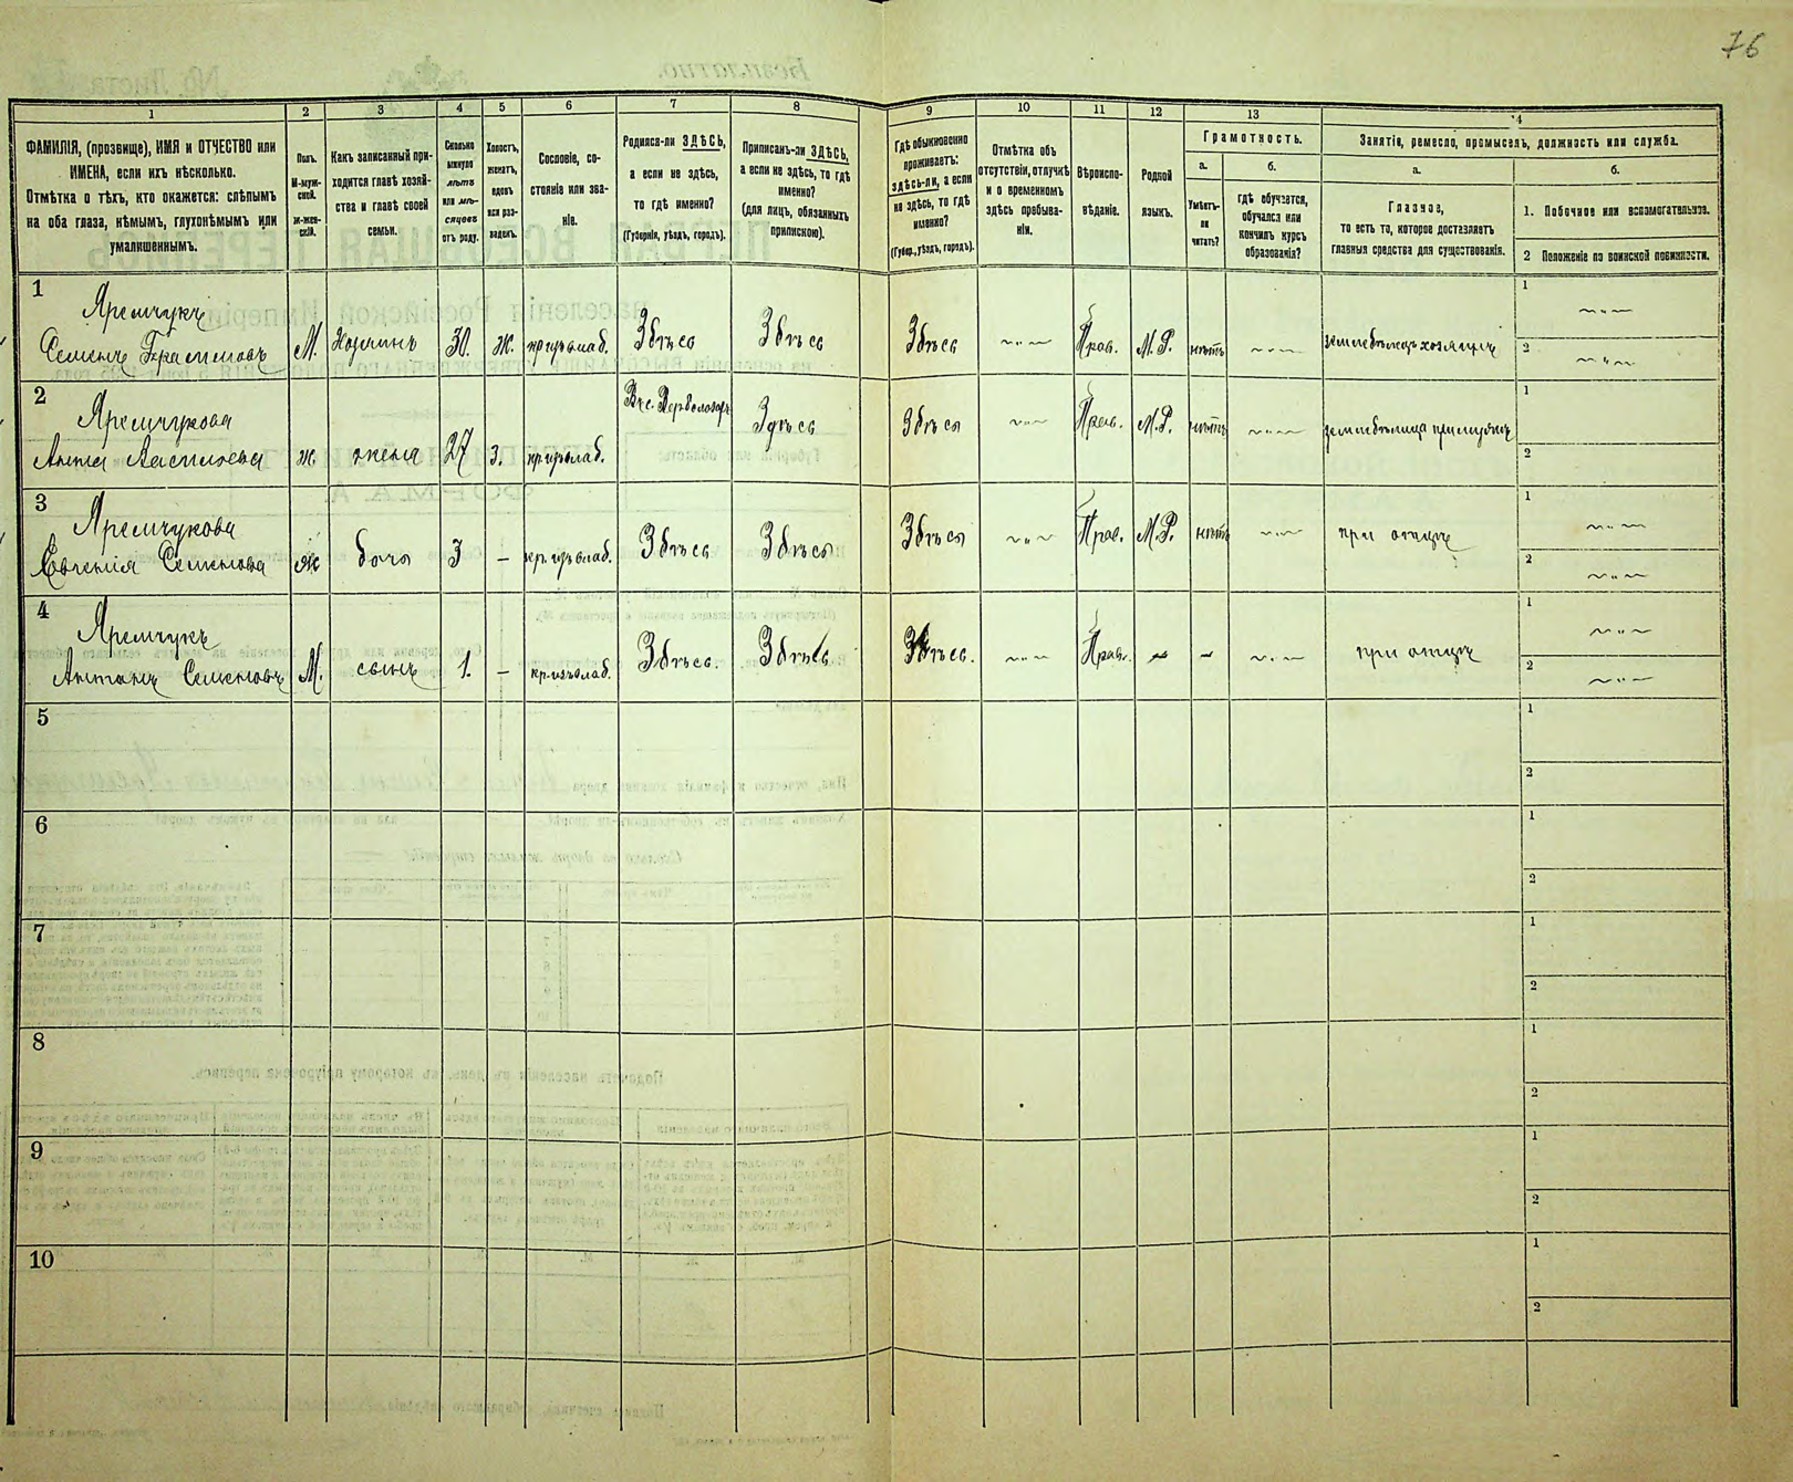 76
1
2
3
4
5
6
7
8
9
10
11
12
13
14
ФАМИЛІЯ, (прозвище), ИМЯ и ОТЧЕСТВО или
ИМЕНА, если ихъ нѣсколько.
Отмѣтка о тѣхъ, кто окажется: слѣпымъ
на оба глаза, нѣмымъ, глухонѣмымъ или
умалишеннымъ.
Полъ.
М-муж-
ской.
Ж-жен-
скій.
Какъ записанный при-
ходится главѣ хозяй-
ства и главѣ своей
семьи.
Сколько
минуло
лѣтъ
или мѣ-
сяцевъ
отъ роду.
Холостъ,
женатъ,
вдовъ
или раз-
веденъ.
Сословіе, со-
стояніе или зва-
ніе.
Родился-ли ЗДѢСЬ,
а если не здѣсь,
то гдѣ именно?
(Губернія, уѣздъ, городъ).
Приписанъ-ли ЗДѢСЬ,
а если не здѣсь, то гдѣ
именно?
(для лицъ, обязанныхъ
припискою).
Гдѣ обыкновенно
проживаетъ:
здѣсь-ли, а если
не здѣсь, то гдѣ
именно?
(Губер., уѣздъ, городъ).
Отмѣтка объ
отсутствіи, отлучкѣ
и о временномъ
здѣсь пребыва-
ніи.
Вѣроиспо-
вѣданіе.
Родной
языкъ.
Грамотность.
а.
Умѣетъ-
ли
читать?
б.
гдѣ обучается,
обучался или
кончилъ курсъ
образованія?
Занятіе, ремесло, промыселъ, должность или служба.
а.
Главное,
то есть то, которое доставляетъ
главныя средства для существованія.
б.
1. Побочное или вспомогательное.
2 Положеніе по воинской повинности.
1
Яремчукъ
Семенъ Ефимовъ М. Хозяинъ 30. ж. кр. изъ влад. Здѣсь Здѣсь Здѣсь Прав. М.Р. нѣтъ земледѣлецъ хозяинъ
1
2
2
Яремчукова
Анна Васильева ж. жена 27 з. кр. изъ влад. Здѣсь Здѣсь Прав. М.Р. нѣтъ
1
2
3
Яремчукова
Евгенія Семенова ж дочь 3 – кр. изъ влад. Здѣсь Здѣсь Здѣсь Прав. М.Р. нѣтъ при отцѣ
1
2
4
Яремчукъ
Антонъ Семеновъ М. сынъ 1. – кр. изъ влад. Здѣсь. Здѣсь Здѣсь. Прав. при отцѣ
1
2
5
1
2
6
1
2
7
1
2
8
1
2
9
1
2
10
1
2